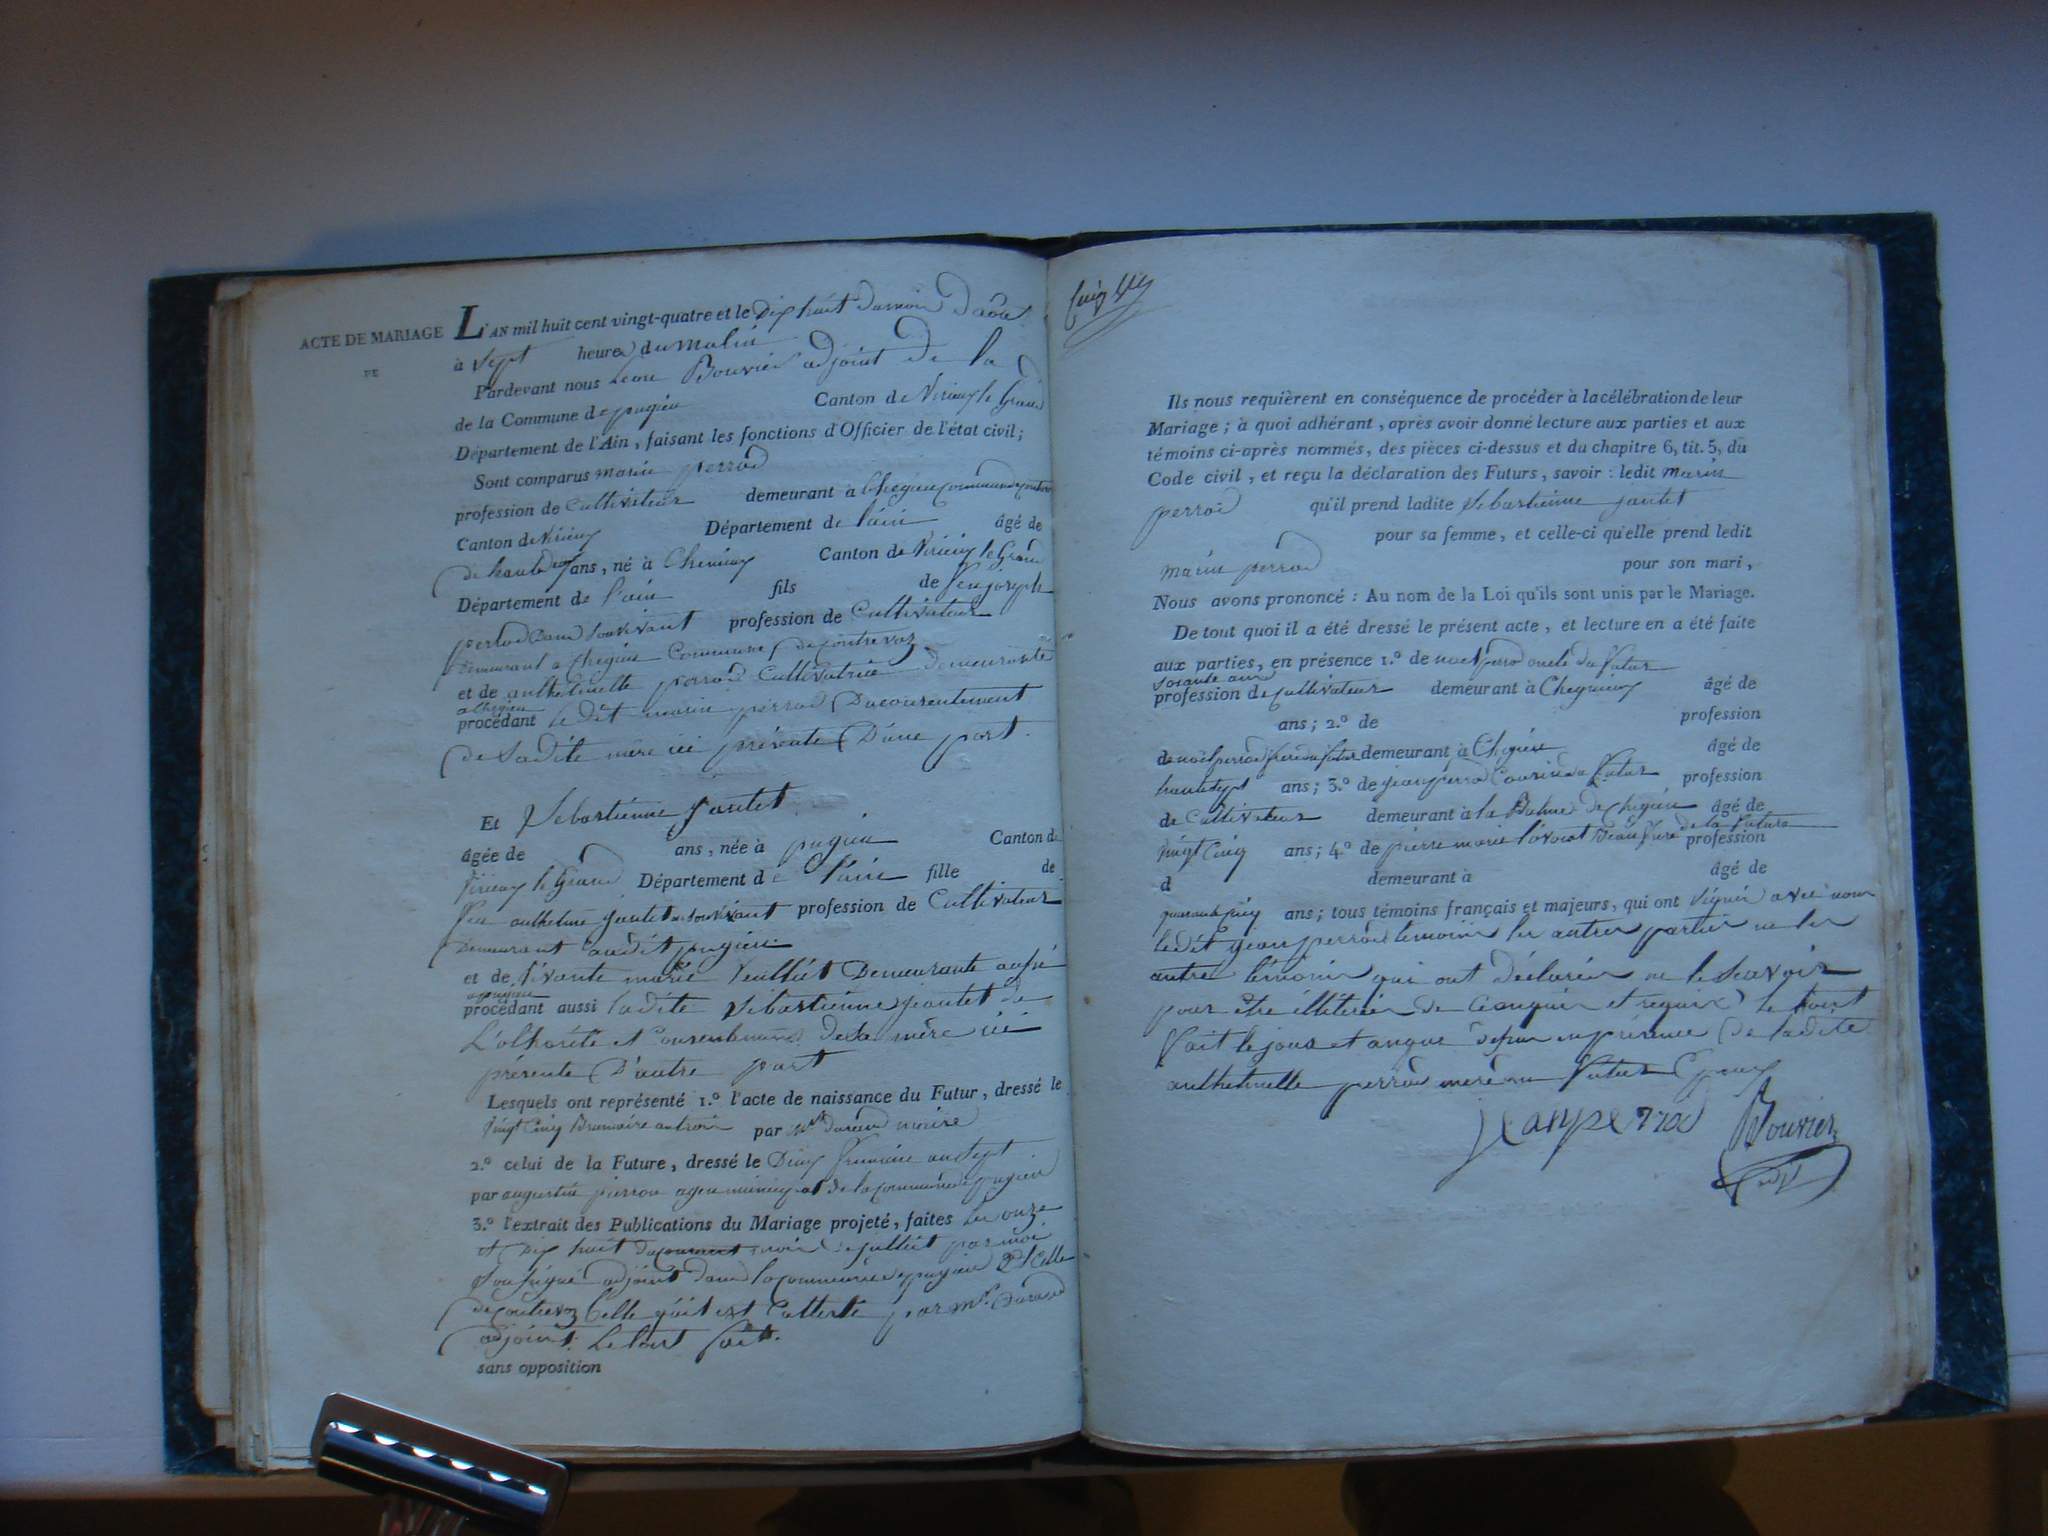 ACTE DE MARIAGE
DE
L'AN mil huit cent vingt-quatre et le Dix huit du mois D'aôut
à Sept heures du matin
Pardevant nous Bouvier adjoint de la
de la Commune de pugieu Canton de Virieu le Grand
Département de l'Ain, faisant les fonctions d'Officier de l'état civil;
Sont comparus marin perrod
profession de Cultivateur demeurant à Chegieu commune
Canton de Virieu Département de l'ain âgé de
ans, né à Canton de Virieu le Grand
Département de l'ain fils de feu joseph
perrod profession de Cultivateur
Demurant a Chegieu Commune de contrevoz
et de anthelmette perrod Cultivatrice demeurante
a Chegieu
procédant ledit marin perrod Du consentement
de Sadite mère ici présente D'une part.
Et Sebastienne Jantet
âgée de ans, née à pugieu Canton de
Virieu le Grand Département de l'ain fille de
feu anthelme jantet profession de Cultivateur
Demeurant audit pugieu.
et de vivante marie Demeurante
a pugieu
procédant aussi ladite Sebastienne jeantet de
L'othorité et Consentement de Sa mère ici
présente D'autre part
Lesquels ont représenté 1.º l'acte de naissance du Futur, dressé le
Vingt Cinq Brumaire an trois par Mr durand
2.º celui de la Future, dressé le frimaire an Sept
par augustin pierron agent municipal de la commune de pugieu
3.º l'extrait des Publications du Mariage projeté, faites les onze
et Dix huit du courant mois de juillet par moi
Soussigné adjoint dans la commune de pugieu & Celle
de Contrevoz Celle qui est attesté par Mr. Durand
adjoint. Le tout fait.
sans opposition
Ils nous requièrent en conséquence de procéder à la célébration de leur
Mariage; à quoi adhérant, après avoir donné lecture aux parties et aux
témoins ci-après nommés, des pièces ci-dessus et du chapitre 6, tit. 5, du
Code civil, et reçu la déclaration des Futurs, savoir: ledit marin
perrod qu'il prend ladite Sebastienne jantet
pour sa femme, et celle-ci qu'elle prend ledit
marin perrod pour son mari,
Nous avons prononcé: Au nom de la Loi qu'ils sont unis par le Mariage.
De tout quoi il a été dressé le présent acte, et lecture en a été faite
aux parties, en présence 1.º de noel perrod oncle du futur
soixante ans
profession de Cultivateur demeurant à Chegieu âgé de
ans; 2.º de profession
de noël perrod frere du futur demeurant à Chegieu âgé de
trente sept ans; 3.º de jean perrod Cousin du futur profession
de Cultivateur demeurant à la Balme de Chegieu âgé de
Vingt Cinq ans; 4.º de pierre marie Beau frere de la future profession
d demeurant à âgé de
quarante cinq ans; tous témoins français et majeurs, qui ont Signés avec nous
ledit jean perrod temoin les autres parties
autre témoin qui ont déclarés ne le Scavoir
pour être illiterés de ce enquis et requis le tout
fait le jour et an que dessus en présence de ladite
anthelmette perrod mere du futur Epoux
jeanperrod Bouvier
adjt